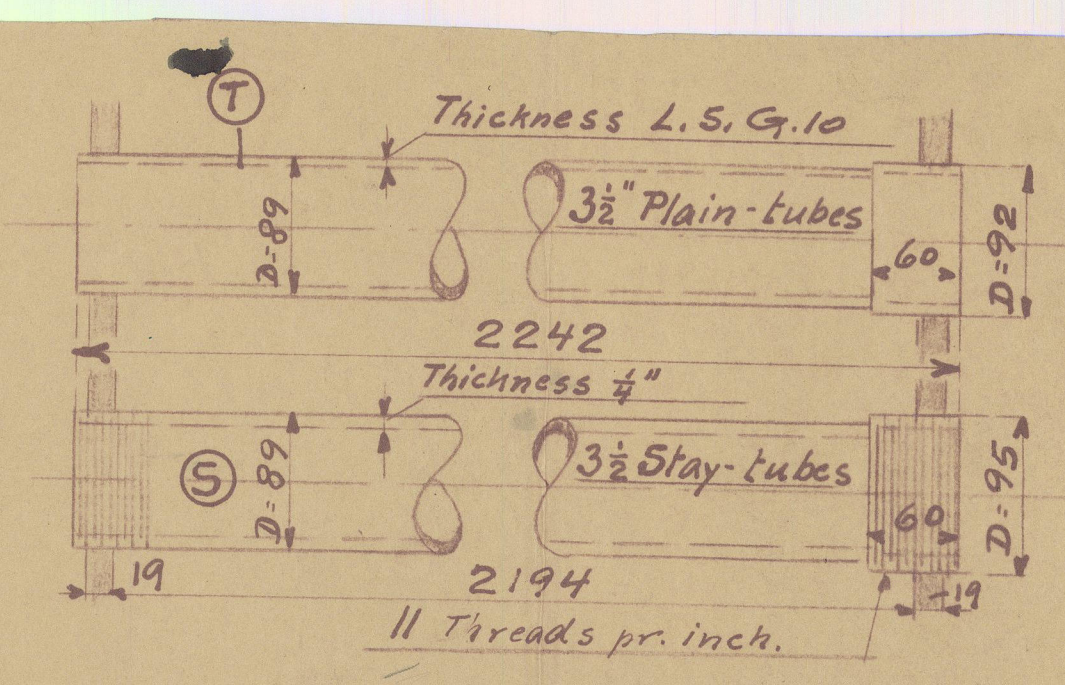 T
Thickness L.S.G.10
3½" Plain-tubes
D=89
60
D=92
2242
Thickness ¼"
3½ Stay-tubes
S
D=89
60
D=95
19
2194
19
11 Threads pr. inch.